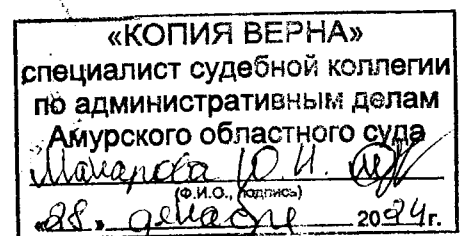 «КОПИЯ ВЕРНА»
специалист судебной коллегии
по административным делам
Амурского областного суда
Макарова Ю.И.
(Ф.И.О., подпись)
«28» декабря 2024г.